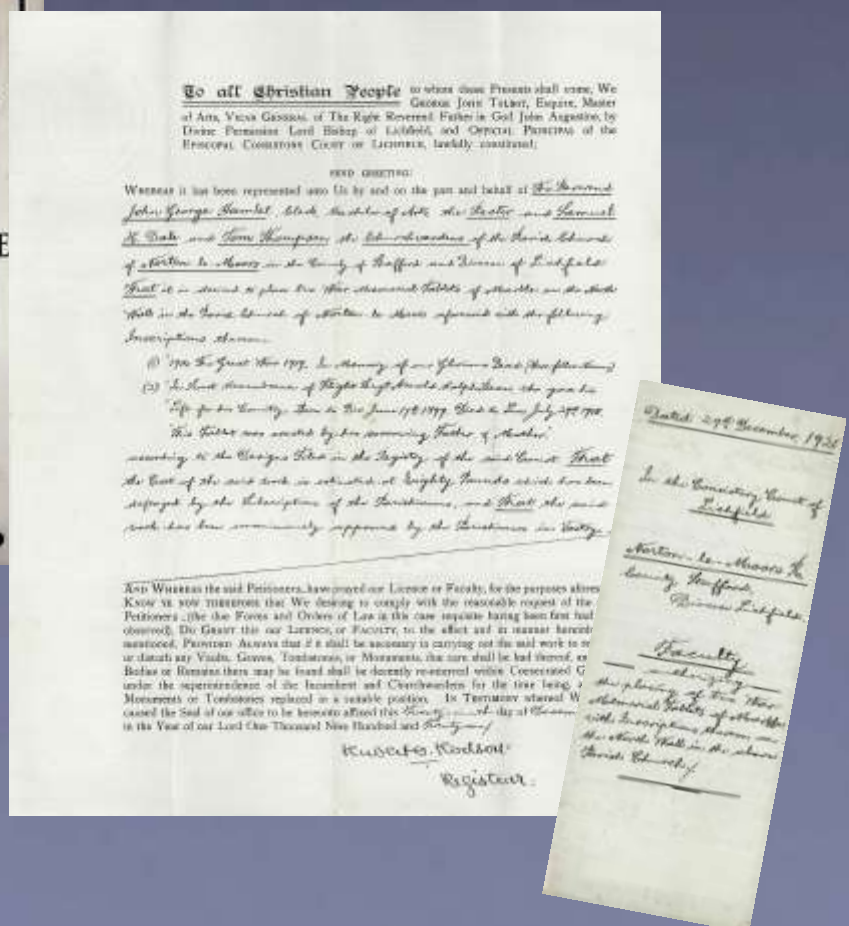 E
To all Christian People to whom these Presents shall come, We
GEORGE JOHN TALBOT, Esquire, Master
of Arts, VICAR GENERAL of The Right Reverend Father in God John Augustine, by
Divine Permission Lord Bishop of Lichfield, and OFFICIAL PRINCIPAL of the
EPISCOPAL CONSISTORY COURT OF LICHFIELD, lawfully constituted;
SEND GREETING:
WHEREAS it has been represented unto Us by and on the part and behalf of The Reverend
John George Hamlet, Clerk, of Arts the Rector and Samuel
Dale and Tom Thompson the Churchwardens of the Parish Church
of Norton le Moors in the County of Stafford and Diocese of Lichfield
That it is desired to place two War Memorial Tablets of Marble on the North
Wall in the Parish Church of Norton le Moors aforesaid with the following
Inscriptions thereon
(1) The Great War 1919. In Memory of our Glorious Dead
(2) In Proud remembrance of Flight Arnold Ralph who gave his
Life for his Country. June 17th 1899. July 29th 1918.
This Tablet was erected by his sorrowing Father & Mother.
according to the Designs filed in the Registry of the said Court That
the Cost of the said work is estimated at Eighty Pounds which has been
defrayed by the Subscriptions of the Parishioners, and That the said
work has been unanimously approved by the Parishioners in Vestry
AND WHEREAS the said Petitioners have prayed our Licence or Faculty, for the purposes
KNOW YE NOW THEREFORE that We desiring to comply with the reasonable request of the
Petitioners (the due Forms and Orders of Law in this case requisite having been first had
observed), DO GRANT this our LICENCE, or FACULTY, to the effect and in manner
mentioned, PROVIDED ALWAYS that if it shall be necessary in carrying out the said work to
or disturb any Vaults, Graves, Tombstones, or Monuments, due care shall be had thereof,
Bodies or Remains there may be found shall be decently re-interred within Consecrated G
under the superintendence of the Incumbent and Churchwardens for the time being,
Monuments or Tombstones replaced in a suitable position. IN TESTIMONY whereof W
caused the Seal of our office to be hereunto affixed this day of
in the Year of our Lord One Thousand Nine Hundred and
Hubert Hodson
Registrar.
Dated 29th December 192
In the Consistory Court of
Lichfield
Norton-le-Moors
County Stafford
Diocese Lichfield
Faculty
the placing of two War
Memorial Tablets of Marble
with Inscriptions thereon on
the North Wall in the above
Parish Church